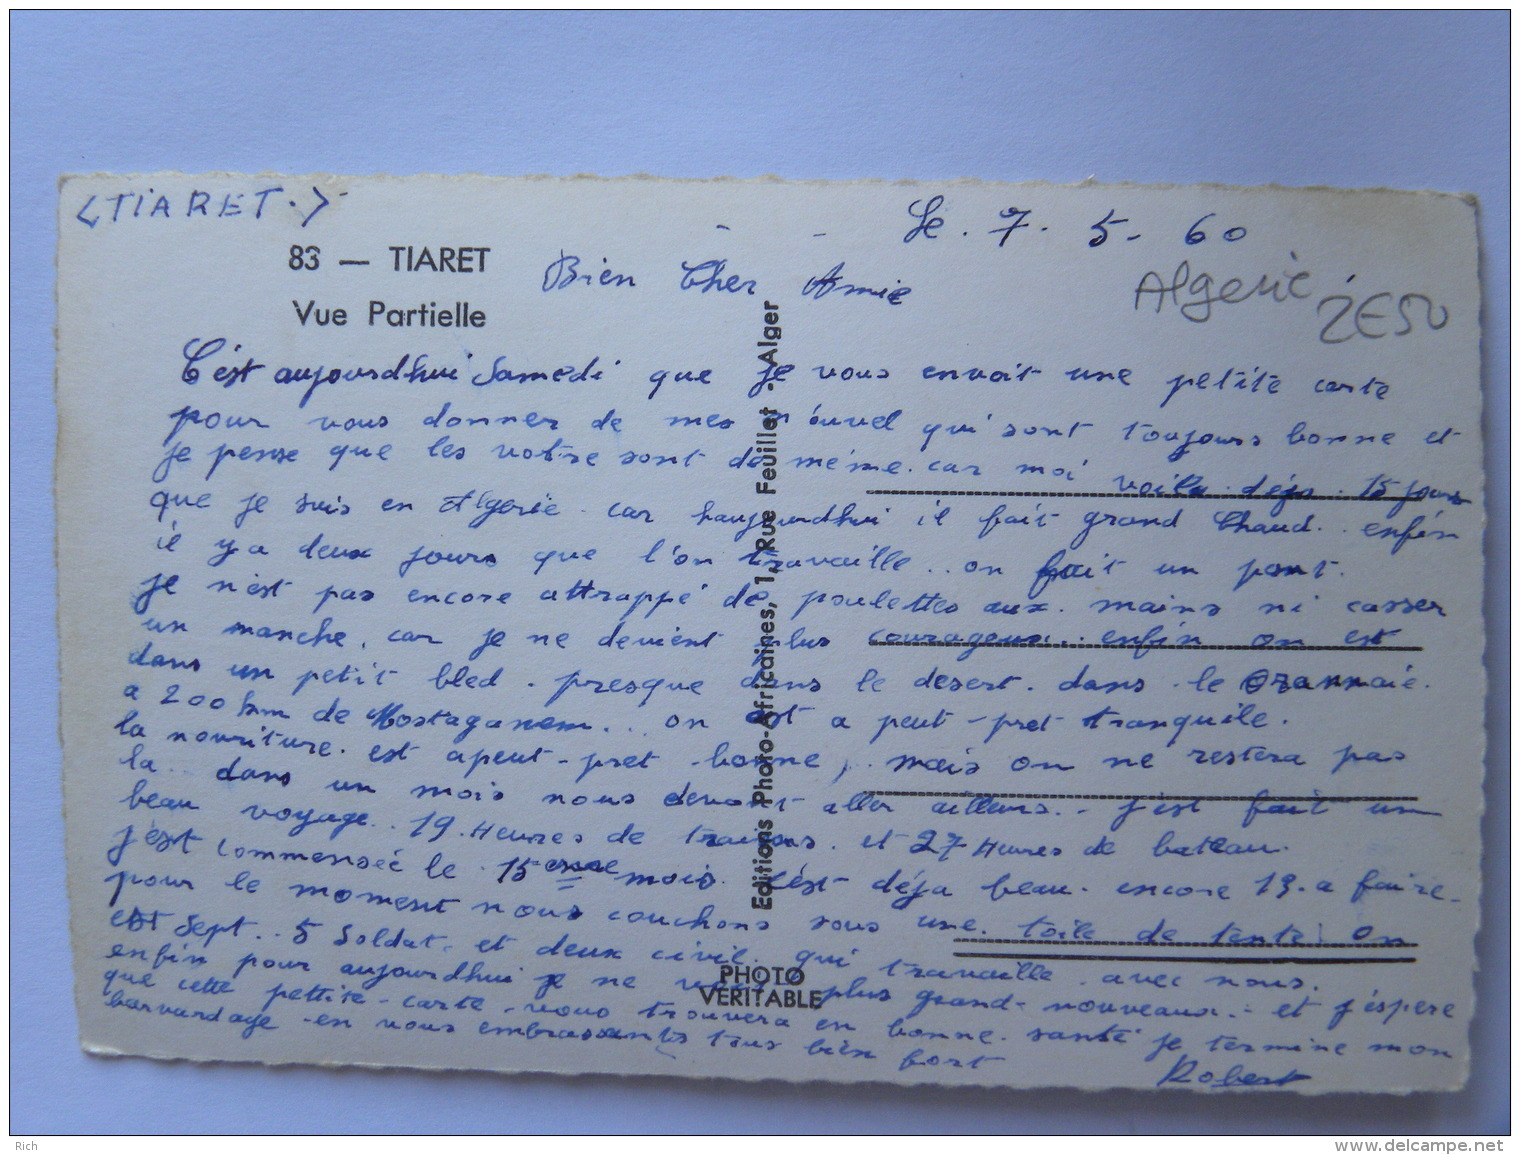 <TIARET.>
Le. 7. 5. 60
83 — TIARET
Vue Partielle
Bien Cher Amie
Algerie
2E50
C'est aujourdhui Samedi que je vous envoit une petite carte
pour vous donner de mes nouvel qui sont toujours bonne et
je pense que les votre sont de même. car moi voila déja. 15 jours
que je suis en Algerie. car haujourdhui il fait grand Chaud.. enfin
il y a deux jours que l'on travaille.. on fait un pont.
je n'est pas encore attrappé de poulettes aux. mains ni casser
un manche. car je ne devient plus courageux... enfin on est
dans un petit bled. presque dans le desert. dans. le Orannaie.
a 200 km de Mostaganem... on est a peut-pret tranquile.
la nouriture. est apeut-pret bonne, mais on ne restera pas
la.. dans un mois nous devont aller ailleurs.. j'est fait un
beau voyage.. 19. Heures de trains. et 27 Heures de bateau.
j'est commensée le 15 eme mois. c'est déja beau. encore 13. a faire.
pour le moment nous couchons sous une. toile de tente. on
est sept.. 5 soldat. et deux civil. qui travaille. avec nous.
enfin pour aujourdhui je ne vous plus grand-nouveaux.. et j'éspere
que cette pettite-carte-vous trouvera en bonne. santé je termine mon
barvardage-en vous embrassants tous bien fort
Robert
Editions Photo-Africaines, 1, Rue Feuillet - Alger
PHOTO
VERITABLE
Rich
www.delcampe.net